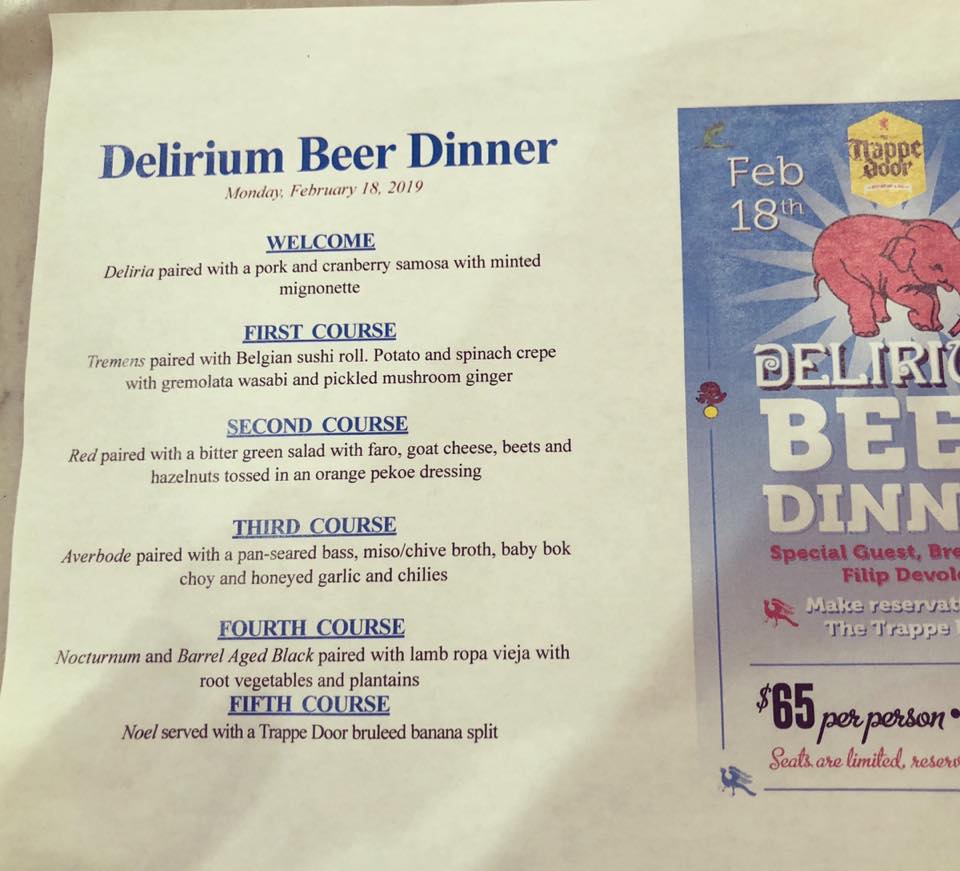 Delirium Beer Dinner
Monday, February 18, 2019
WELCOME
Deliria paired with a pork and cranberry samosa with minted
mignonette
FIRST COURSE
Tremens paired with Belgian sushi roll. Potato and spinach crepe
with gremolata wasabi and pickled mushroom ginger
SECOND COURSE
Red paired with a bitter green salad with faro, goat cheese, beets and
hazelnuts tossed in an orange pekoe dressing
THIRD COURSE
Averbode paired with a pan-seared bass, miso/chive broth, baby bok
choy and honeyed garlic and chilies
FOURTH COURSE
Nocturnum and Barrel Aged Black paired with lamb ropa vieja with
root vegetables and plantains
FIFTH COURSE
Noel served with a Trappe Door bruleed banana split
Trappe
Door
Feb
18th
DELIRIU
BEE
DINN
Special Guest, Bre
Filip Devol
Make reservat
The Trappe
$65 per person •
Seats are limited, reserv